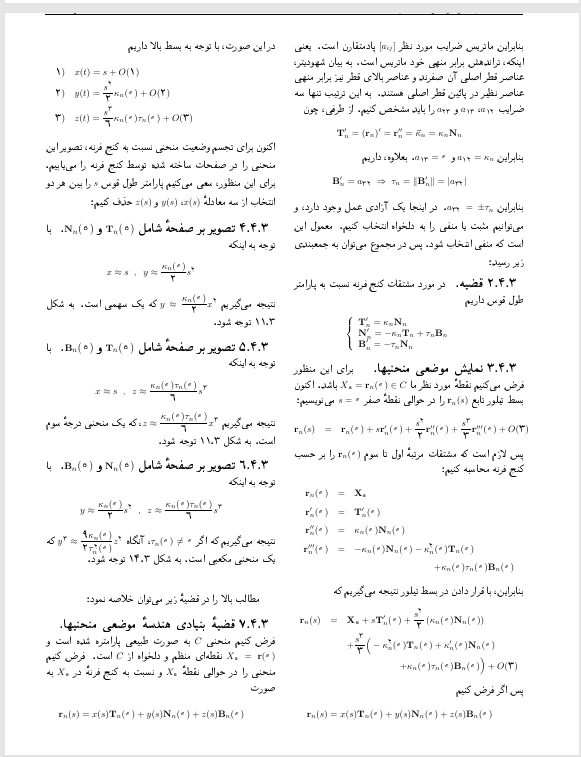 بنابراین ماتریس ضرایب مورد نظر [a_ij] پادمتقارن است. یعنی
اینکه، تراندهش برابر منهی خود ماتریس است. به بیان شهودیتر،
عناصر قطر اصلی آن صفرند و عناصر بالای قطر نیز برابر منهی
عناصر نظیر در پائین قطر اصلی هستند. به این ترتیب تنها سه
ضرایب a_۱۲، a_۱۳ و a_۲۳ را باید مشخص کنیم. از طرفی، چون
T'_n = (r_n)' = r''_n = κ⃗_n = κ_n N_n
بنابراین a_۱۲ = κ_n و a_۱۳ = ۰. بعلاوه، داریم
B'_n = a_۳۲ ⇒ τ_n = ‖B'_n‖ = |a_۳۲|
بنابراین a_۳۲ = ±τ_n. در اینجا یک آزادی عمل وجود دارد، و
می‌توانیم مثبت یا منفی را به دلخواه انتخاب کنیم. معمول این
است که منفی انتخاب شود. پس در مجموع می‌توان به جمعبندی
زیر رسید:
۲.۴.۳ قضیه. در مورد مشتقات کنج فرنه نسبت به پارامتر
طول قوس داریم
T'_n = κ_n N_n
N'_n = −κ_n T_n + τ_n B_n
B'_n = −τ_n N_n
۳.۴.۳ نمایش موضعی منحنیها. برای این منظور
فرض می‌کنیم نقطهٔ مورد نظر ما X_۰ = r_n(۰) ∈ C باشد. اکنون
بسط تیلور تابع r_n(s) را در حوالی نقطهٔ صفر s = ۰ می‌نویسیم:
r_n(s) = r_n(۰) + sr'_n(۰) + s^۲/۲ r''_n(۰) + s^۳/۳ r'''_n(۰) + O(۳)
پس لازم است که مشتقات مرتبهٔ اول تا سوم r_n(۰) را بر حسب
کنج فرنه محاسبه کنیم:
r_n(۰) = X_۰
r'_n(۰) = T'_n(۰)
r''_n(۰) = κ_n(۰)N_n(۰)
r'''_n(۰) = −κ_n(۰)N_n(۰) − κ_n^۲(۰)T_n(۰)
+κ_n(۰)τ_n(۰)B_n(۰)
بنابراین، با قرار دادن در بسط تیلور نتیجه می‌گیریم که
r_n(s) = X_۰ + sT'_n(۰) + s^۲/۲ (κ_n(۰)N_n(۰))
+ s^۳/۳ ( − κ_n^۲(۰)T_n(۰) + κ'_n(۰)N_n(۰)
+κ_n(۰)τ_n(۰)B_n(۰)) + O(۳)
پس اگر فرض کنیم
r_n(s) = x(s)T_n(۰) + y(s)N_n(۰) + z(s)B_n(۰)
در این صورت، با توجه به بسط بالا داریم
۱) x(t) = s + O(۱)
۲) y(t) = s^۲/۲ κ_n(۰) + O(۲)
۳) z(t) = s^۳/۶ κ_n(۰)τ_n(۰) + O(۳)
اکنون برای تجسم وضعیت منحنی نسبت به کنج فرنه، تصویر این
منحنی را در صفحات ساخته شده توسط کنج فرنه را می‌یابیم.
برای این منظور، سعی می‌کنیم پارامتر طول قوس s را بین هر دو
انتخاب از سه معادلهٔ x(s)، y(s) و z(s) حذف کنیم:
۴.۴.۳ تصویر بر صفحهٔ شامل T_n(۰) و N_n(۰). با
توجه به اینکه
x ≈ s , y ≈ κ_n(۰)/۲ s^۲
نتیجه می‌گیریم y ≈ κ_n(۰)/۲ x^۲ که یک سهمی است. به شکل
۱۱.۳ توجه شود.
۵.۴.۳ تصویر بر صفحهٔ شامل T_n(۰) و B_n(۰). با
توجه به اینکه
x ≈ s , z ≈ κ_n(۰)τ_n(۰)/۶ s^۳
نتیجه می‌گیریم z ≈ κ_n(۰)τ_n(۰)/۶ x^۳، که یک منحنی درجهٔ سوم
است. به شکل ۱۱.۳ توجه شود.
۶.۴.۳ تصویر بر صفحهٔ شامل N_n(۰) و B_n(۰). با
توجه به اینکه
y ≈ κ_n(۰)/۲ s^۲ , z ≈ κ_n(۰)τ_n(۰)/۶ s^۳
نتیجه می‌گیریم که اگر τ_n(۰) ≠ ۰، آنگاه y^۳ ≈ ۹κ_n(۰)/۲τ_n^۲(۰) z^۲ که
یک منحنی مکعبی است. به شکل ۱۴.۳ توجه شود.
مطالب بالا را در قضیهٔ زیر می‌توان خلاصه نمود:
۷.۴.۳ قضیهٔ بنیادی هندسهٔ موضعی منحنیها.
فرض کنیم منحنی C به صورت طبیعی پارامتره شده است و
X_۰ = r(۰) نقطه‌ای منظم و دلخواه از C است. فرض کنیم
منحنی را در حوالی نقطهٔ X_۰ و نسبت به کنج فرنهٔ در X_۰ به
صورت
r_n(s) = x(s)T_n(۰) + y(s)N_n(۰) + z(s)B_n(۰)